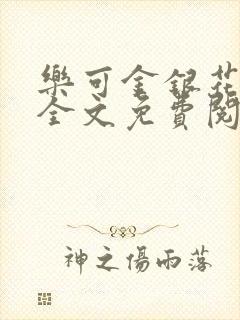 樂可金銀花
全文免費閱
神之傷雨落